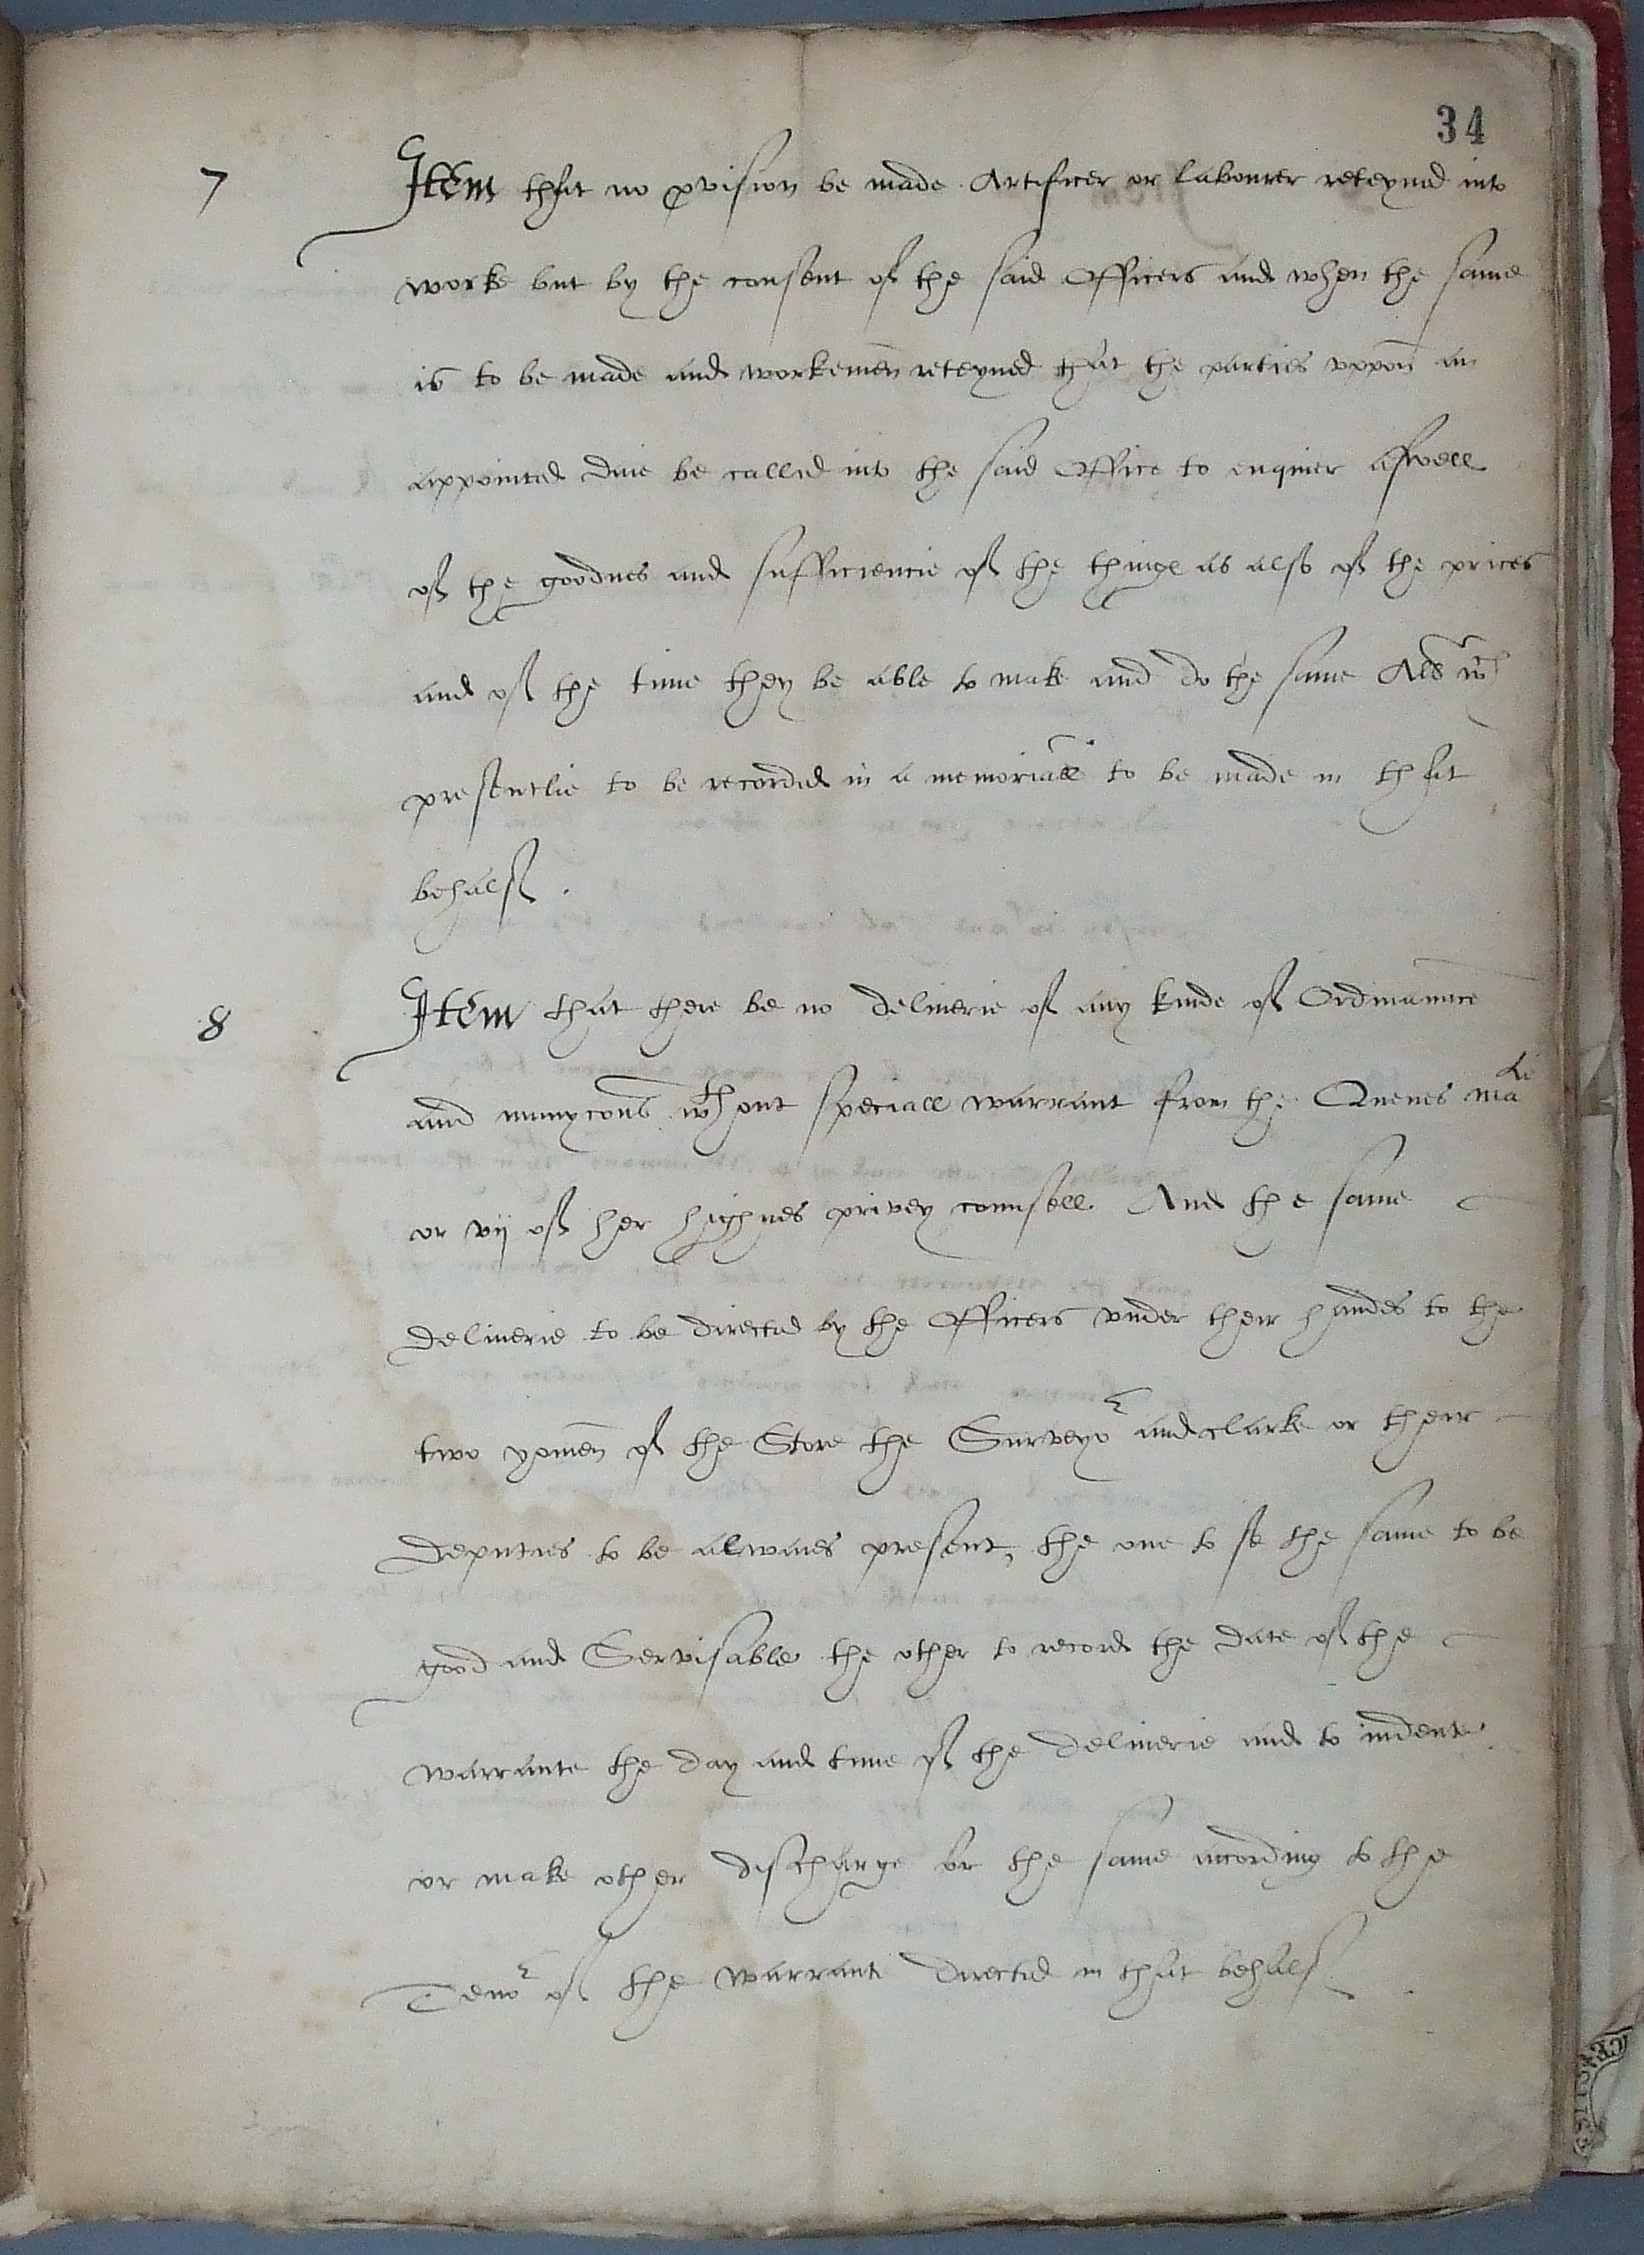 34
7 Item that no pvision be made Artificer or labourer reteyned into
worke but by the consent of the said Officers and when the same
is to be made and workemen reteyned that the parties vppon an
appointed daie be called into the said Office to enquier aswell
of the goodnes and sufficiencie of the thinge as also of the prices
and of the time they be able to make and do the same wch
presentlie to be recorded in a memoriall to be made in that
behalf.
8 Item that there be no deliuerie of any kinde of Ordinaunce
and munycons wthout speciall warrant from the Quenes matie
or vij of her highnes privey counsell. And the same
deliuerie to be directed by the Officers vnder their handes to the
two yomen of the Store the Surveyor and clarke or their
deputies to be alwaies present, the one to se the same to be
good and Servisable the other to record the date of the
warrante the day and time of the deliuerie and to indente
or make other discharge for the same according to the
Tenor of the warrant directed in that behalf.